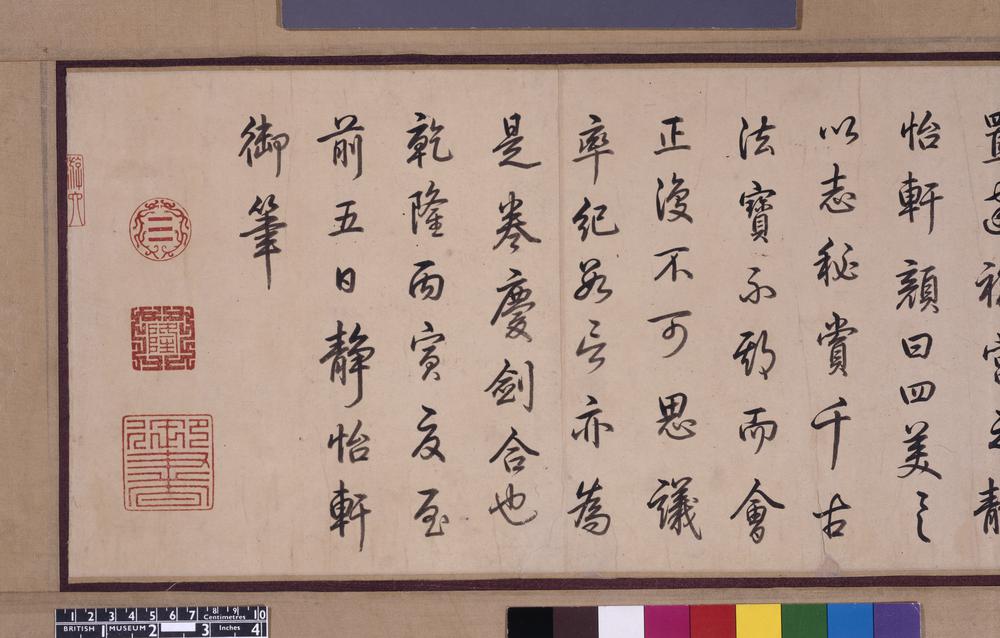 怡軒顏曰四美具
以志秘賞千古
法寶不期而會
正復不可思議
率紀數言亦為
是卷慶劍合也
乾隆丙寅夏至
前五日靜怡軒
御筆
隆
1 2 3 4 5 6 7 8 9 10
Centimetres
BRITISH 1 MUSEUM 2 3 Inches 4